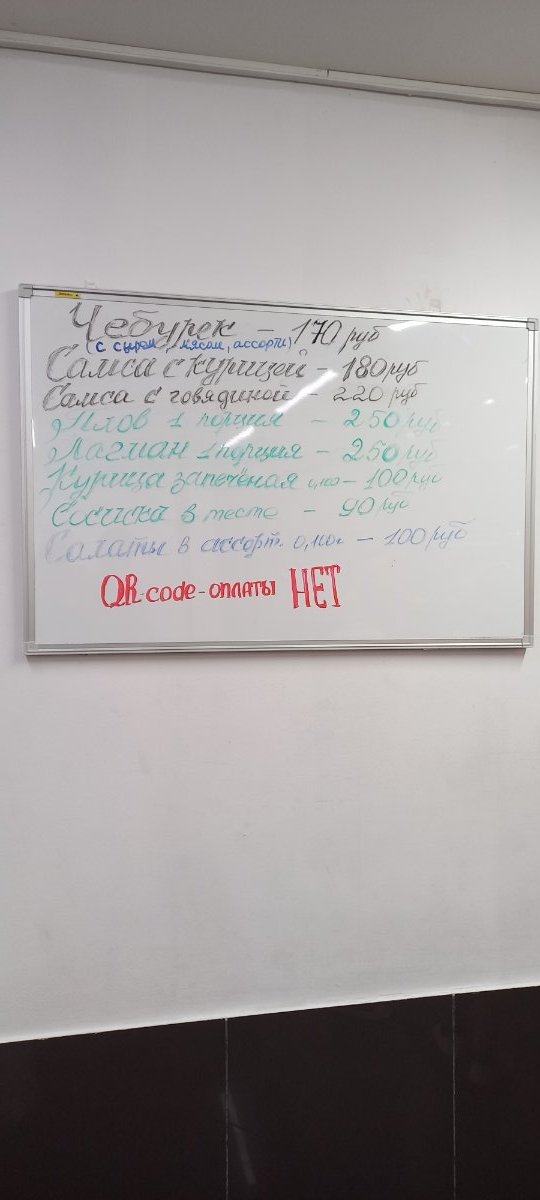 Чебурек - 170 руб
(с сыром, мясом, ассорти)
Самса с курицей - 180 руб
Самса с говядиной - 220 руб
Плов 1 порция - 250 руб
Лагман 1 порция - 250 руб
Курица запечёная 0,100 - 100 руб
Сосиска в тесте - 90 руб
Салаты в ассорт. 0,110г - 100 руб
QR-code-оплаты НЕТ